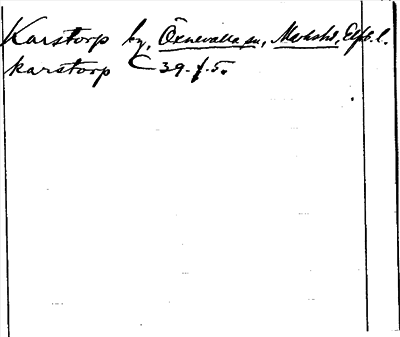 Karstorp by, Öxnevalla sn, Marks hd, Elfsb. l.
karstorp C 39. f. 5.